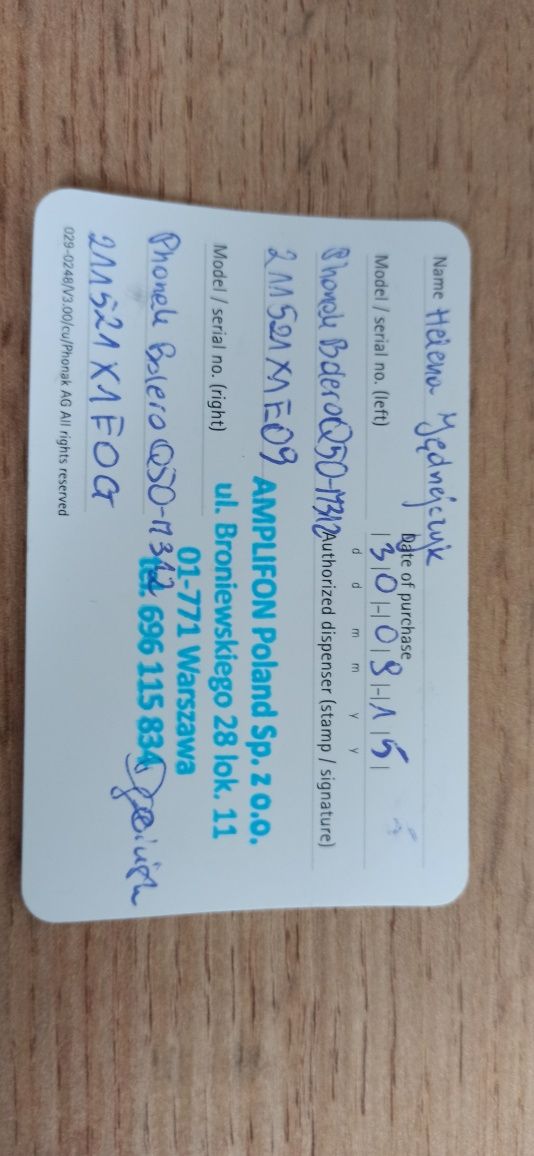 Name Helena Jędrejczyk
Date of purchase
|3|0|-|0|9|-|1|5|
d d m m y y
Model / serial no. (left)
Phonak Bolero Q50-M312
211521X1E09
Authorized dispenser (stamp / signature)
Model / serial no. (right)
Phonak Bolero Q50-M312
211521X1E0G
AMPLIFON Poland Sp. z o.o.
ul. Broniewskiego 28 lok. 11
01-771 Warszawa
tel. 696 115 834
029-0248/V3.00/cu/Phonak AG All rights reserved